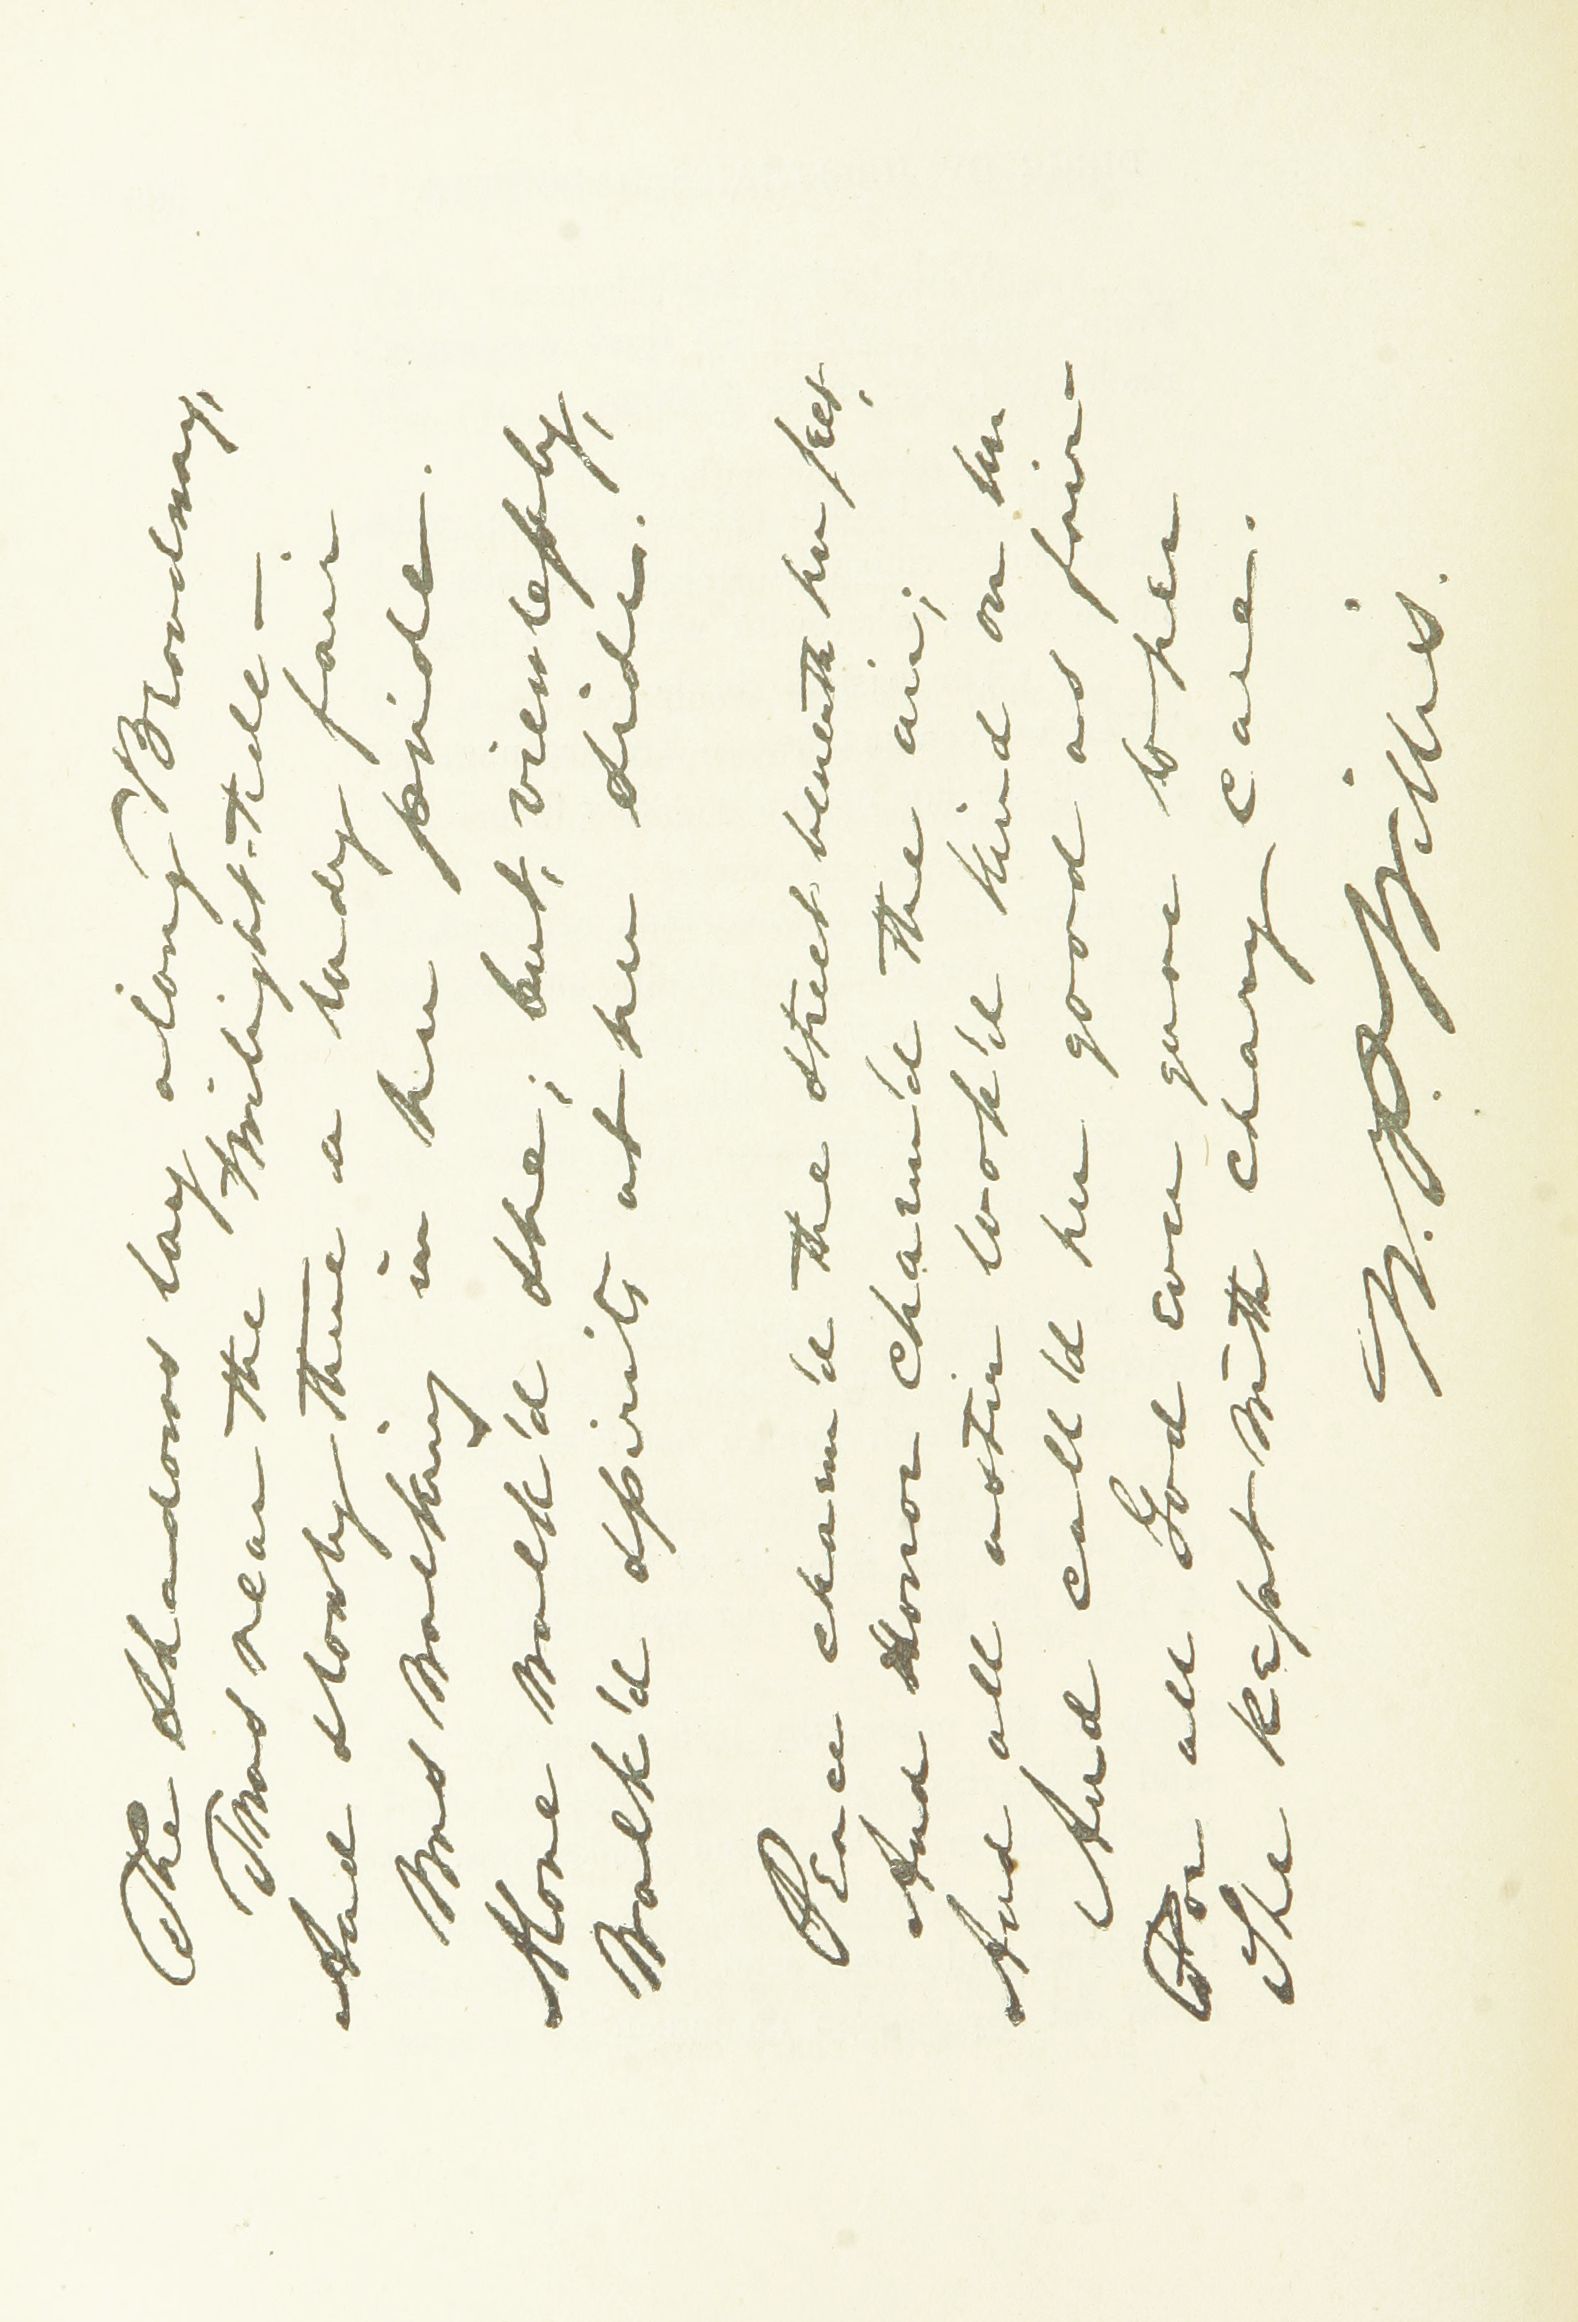 The shadows lay along Broadway,
'Twas near the twilight-tide —
And slowly there a lady fair
Was walking in her pride.
Alone walk'd she; but, viewlessly,
Walk'd spirits at her side.
Peace charm'd the street beneath her feet,
And Honor charm'd the air;
And all astir look'd kind on her
And call'd her good as fair
For all God ever gave to her
She kept with chary care.
N. P. Willis.